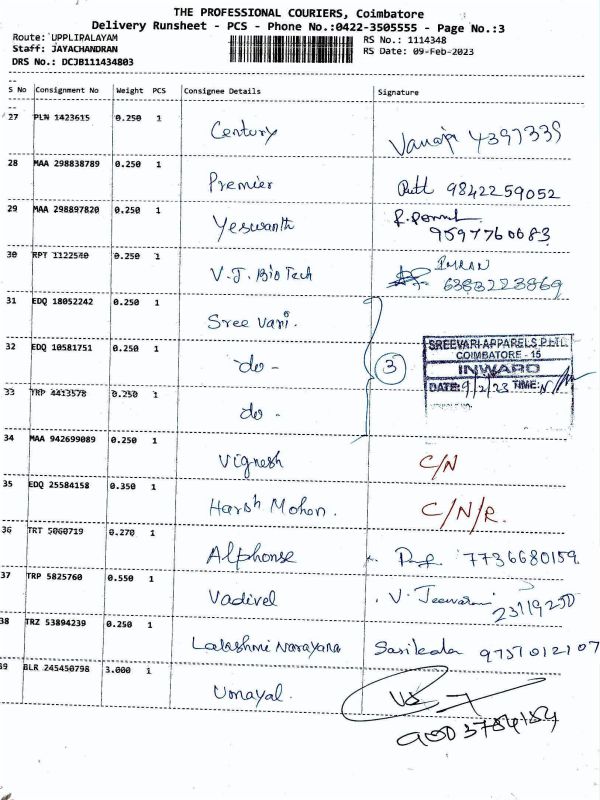 THE PROFESSIONAL COURIERS, Coimbatore
Delivery Runsheet - PCS - Phone No.:0422-3505555 - Page No.:3
Route: UPPLIRALAYAM
RS No.: 1114348
Staff: JAYACHANDRAN
RS Date: 09-Feb-2023
DRS No.: DCJB111434803
S No Consignment No Weight PCS Consignee Details Signature
27 PLN 1423615 0.250 1 Century Vanaja 4397339
28 MAA 298838789 0.250 1 Premier 9842259052
29 MAA 298897820 0.250 1 Yeswanth 9597760683
30 RPT 1122540 0.250 1 V.J. BioTech IMRAN 6383223869
31 EDQ 18052242 0.250 1 Sree Vari.
32 EDQ 10581751 0.250 1 do -
3
SREEVARI APPARELS P.LTD.
COIMBATORE - 15
INWARD
DATE: 9/2/23 TIME:
33 TRP 4413578 0.250 1 do -
34 MAA 942699089 0.250 1 Vignesh C/N
35 EDQ 25584158 0.350 1 Harsh Mohen. C/N/R.
36 TRT 5060719 0.270 1 Alphonse 7736680159
37 TRP 5825760 0.550 1 Vadivel V. 23119250
38 TRZ 53894239 0.250 1 Lakshmi Narayana Sasikala 9757012107
39 BLR 245450798 3.000 1 Umayal.